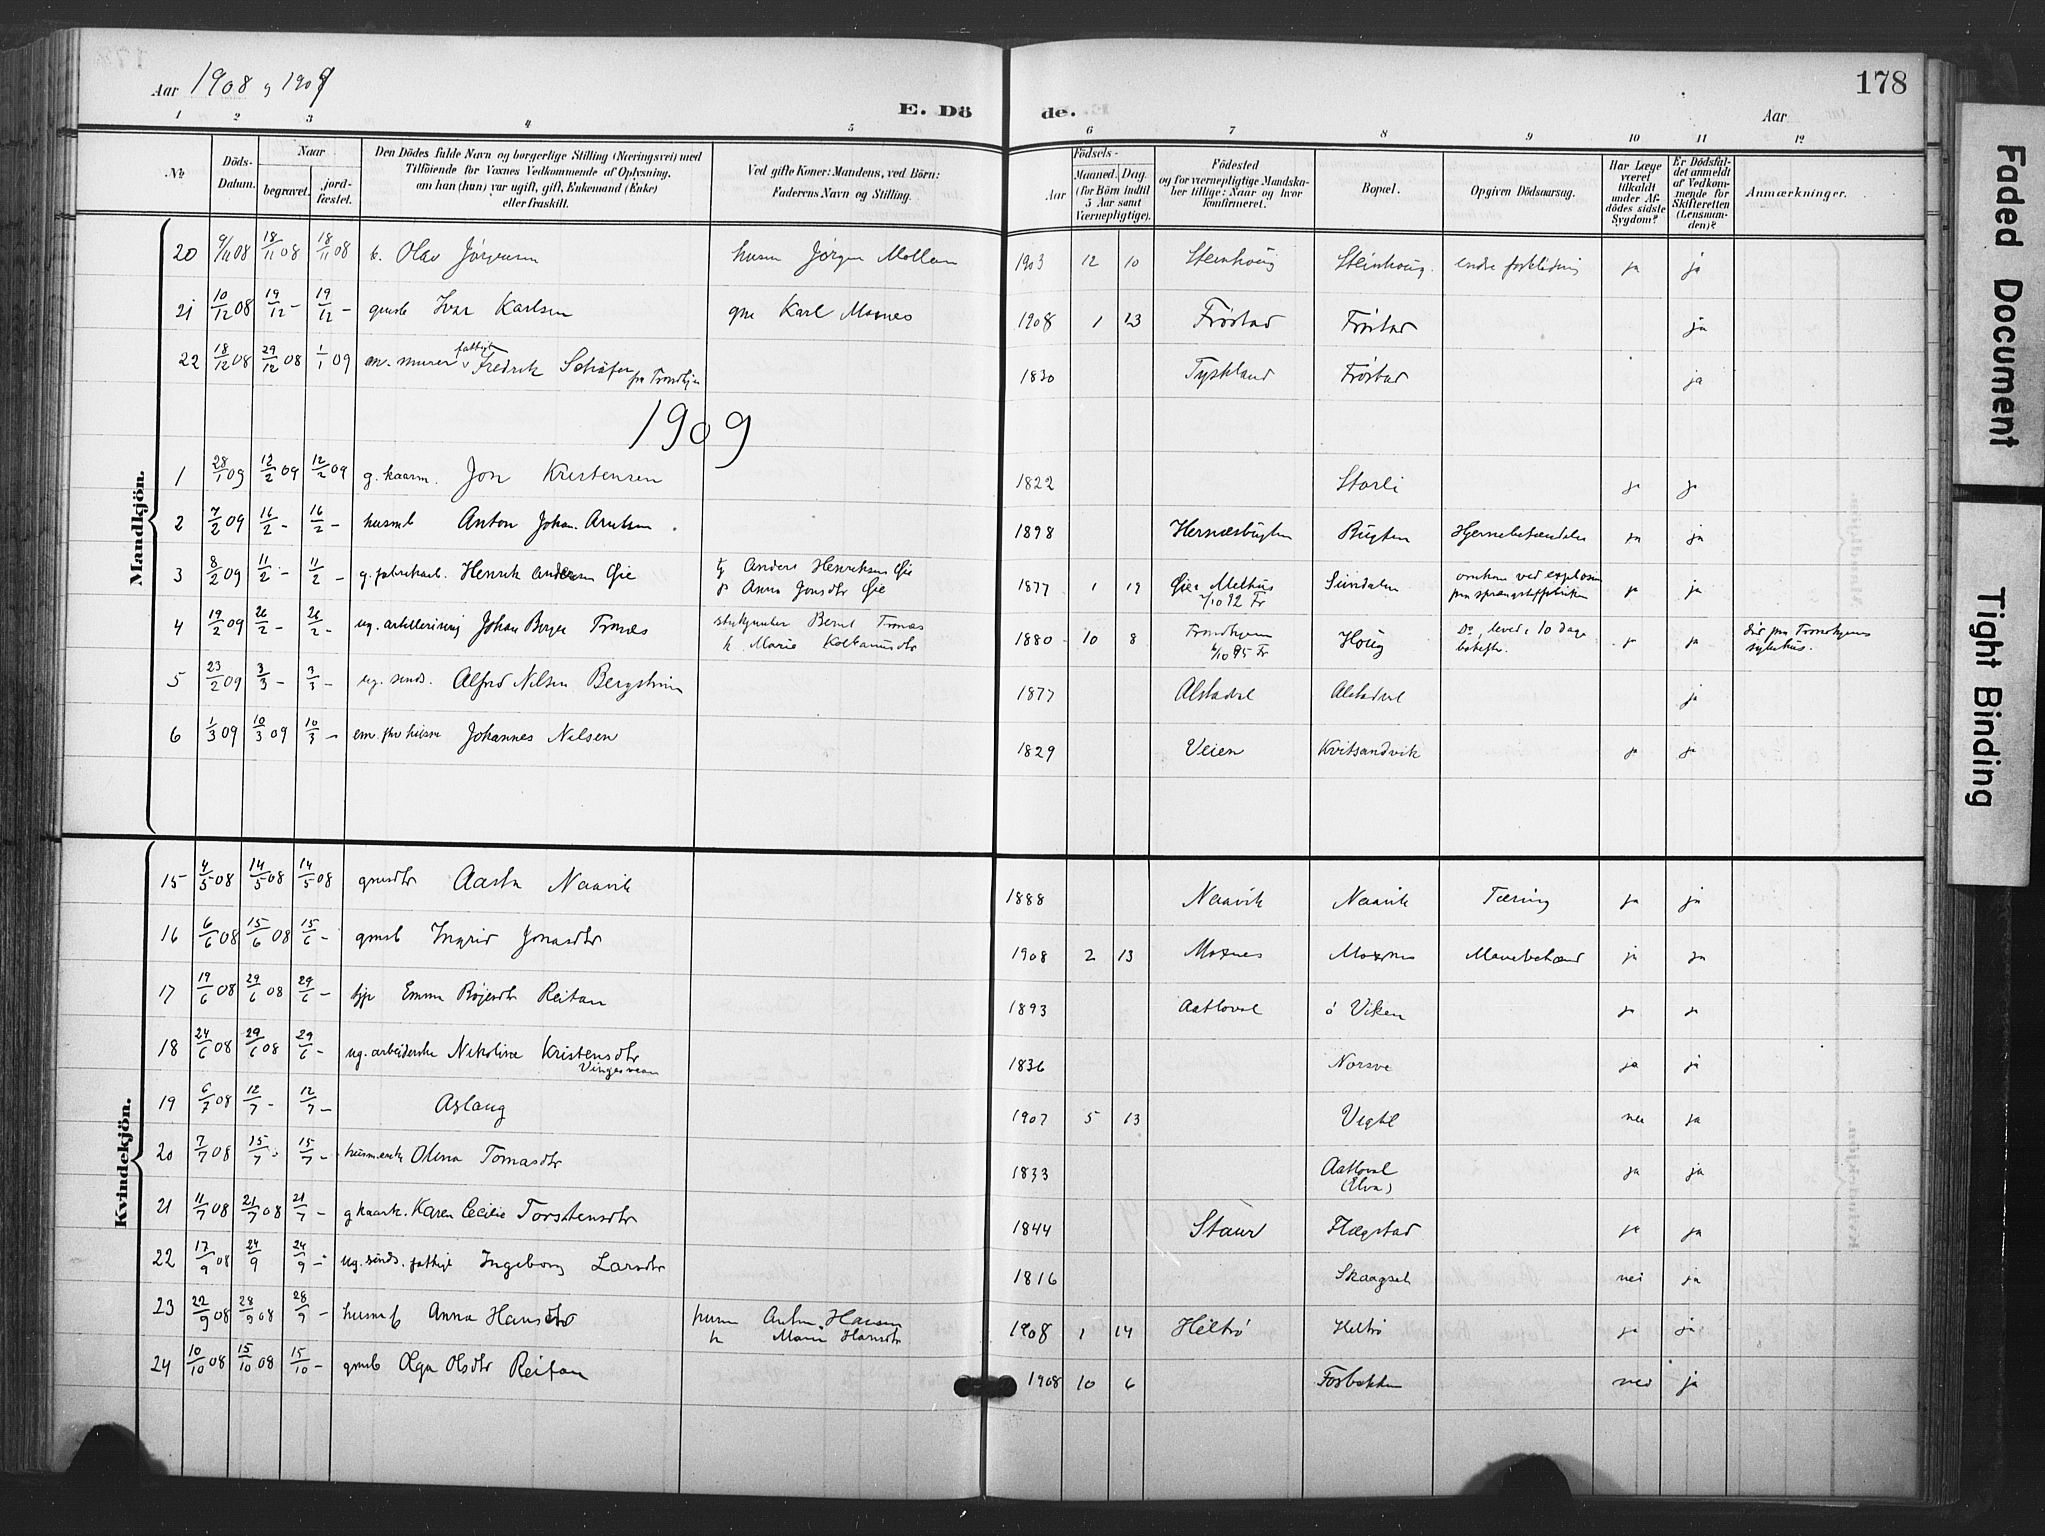 Aar 1908 og 1909
E. Döde.
Aar
178
1 2 3 4 5 6 7 8 9 10 11 12
№
Döds-Datum.
Naar
begravet.
jord-fæstet.
Den Dödes fulde Navn og borgerlige Stilling (Næringsvei) med
Tilföiende for Voxnes Vedkommende af Oplysning,
om han (hun) var ugift, gift, Enkemand (Enke)
eller fraskilt.
Ved gifte Koner: Mandens, ved Börn:
Faderens Navn og Stilling.
Födsels-
Aar
Maaned.
Dag.
(for Börn indtil
5 Aar samt
Værnepligtige).
Födested
og for værnepligtige Mandska-
ber tillige: Naar og hvor
konfirmeret.
Bopæl.
Opgiven Dödsaarsag.
Har Læge
været
tilkaldt
under Af-
dödes sidste
Sygdom?
Er Dödsfal-
det anmeldt
af Vedkom-
mende for
Skifteretten
(Lensman-
den)?
Anmærkninger.
Mandkjön.
20 9/11 08 18/11 08 18/11 08 b. Olav Jørgensen husm Jørgen Mollan 1903 12 10 Steinhoug Steinhoug. ja ja
21 10/12 08 19/12 - 19/12 - gmsb Ivar Karlsen gm Karl Moxnes 1908 1 23 Frøstad Frøstad ja
22 18/12 08 29/12 08 1/1 09 em. murer fattigl Fredrik Schäfer fra Trondhjem 1830 Tyskland Frøstad ja
1909
1 28/1 09 12/2 09 12/2 09 g. kaarm. Jon Kristensen 1822 Storli ja ja
2 7/2 09 16/2 - 16/2 - husmb Anton Johan Arntsen 1898 Hernæsbugten Bugten Hjernebetændelse ja ja
3 8/2 09 11/2 - 11/2 - g. fabrikarb. Henrik Andersen Øie Anders Henriksen Øie
Anna Jonsdtr Øie 1877 1 19 Øie i Melhus
/10 92 Fr Sundalen omkom ved explosion
paa sprængstoffabriken ja ja
4 19/2 09 26/2 - 26/2 - ug. artillerisverg Johan Berger Trønes Bernt Trønes
h. Marie 1880 10 8 Trondhjem
/10 95 Fr Houg Do, leved i 10 dage
bagefter. ja ja død paa Trondhjems
sykehus.
5 23/2 09 3/3 - 3/3 - ug. sinds. Alfred Nilsen Bergstrøm 1877 Alstadvel Alstadvel ja
6 1/3 09 10/3 09 10/3 - em. fhv husm Johannes Nilsen 1829 Veien Kvitsandvik ja ja
Kvindekjön.
15 4/5 08 14/5 08 14/5 08 gmsdtr Aasta Naavik 1888 Naavik Naavik Tæring ja ja
16 6/6 08 15/6 08 15/6 - gmsb Ingrid Jonasdtr 1908 2 13 Moxnes Moxnes Mavebetænd ja ja
17 19/6 08 29/6 08 29/6 - tjp Emma Reitan 1893 Aatloval ö Viken ja ja
18 24/6 08 29/6 08 29/6 - ug. arbeiderske Nikoline Kristensdtr
1836 Norsve ja ja
19 6/7 08 12/7 - 12/7 - Aslaug 1907 5 13 Vigtl nei ja
20 7/7 08 15/7 - 15/7 - husm.enk Olena Tomasdtr 1833 Aatloval
(Elva) ja ja
21 11/7 08 21/7 08 21/7 - g kaark. Karen Cecilie Torstensdtr 1844 Staur Flægstad ja ja
22 17/9 08 24/9 24/9 - ug. sinds. fattigl Ingeborg Larsdtr 1816 Skaagset nei ja
23 22/9 08 28/9 08 28/9 - husmb Anna Hansdtr husm Anton Hansen
h Marie Hansdtr 1908 1 14 Heltrø Heltrø ja ja
24 10/10 08 15/10 08 15/10 - gmsb Olga Olsdtr Reitan 1908 10 6 Forbakken nei ja
Faded Document
Tight Binding